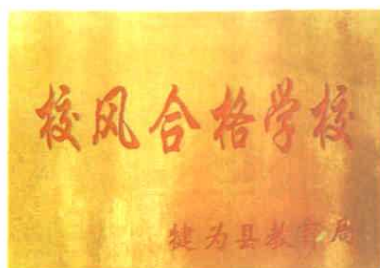 校风合格学校
犍为县教育局